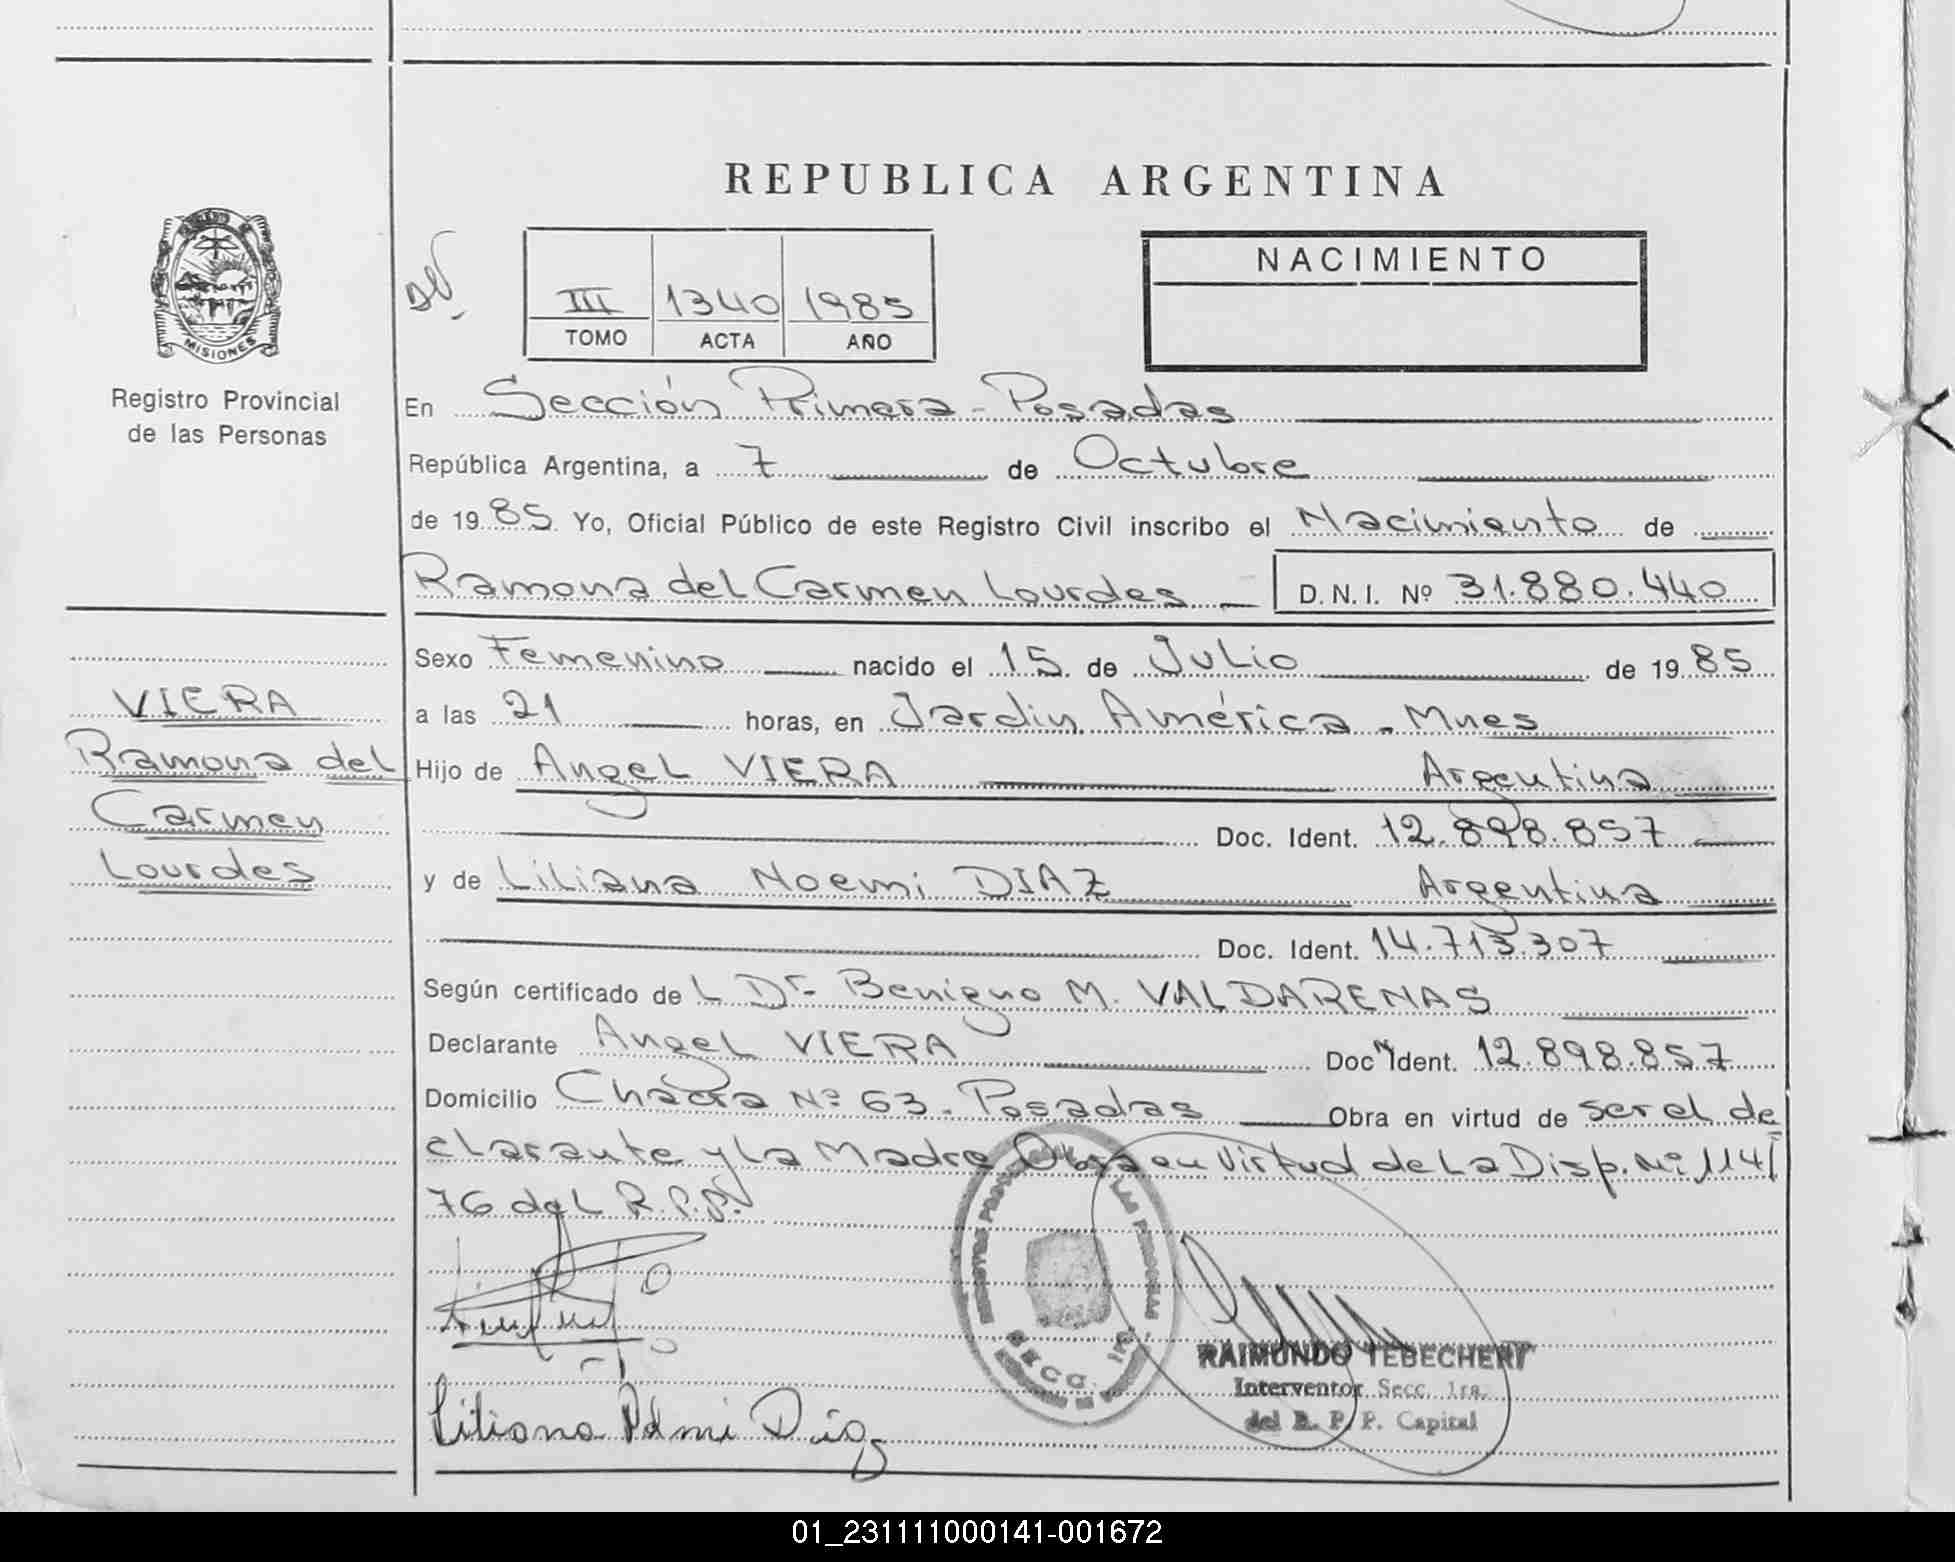 REPUBLICA ARGENTINA
MISIONES
Registro Provincial
de las Personas
III 1340 1985
TOMO ACTA AÑO
NACIMIENTO
En Sección Primera - Posadas
República Argentina, a 7 de Octubre
de 1985 Yo, Oficial Público de este Registro Civil inscribo el Nacimiento de
Ramona del Carmen Lourdes D.N.I. Nº 31.880.440
Sexo Femenino nacido el 15 de Julio de 1985
a las 21 horas, en Jardin América - Mnes
Hijo de Angel VIERA Argentina
Doc. Ident. 12.898.857
y de Liliana Noemi DIAZ Argentina
Doc. Ident. 14.713.307
Según certificado de L Dr. Benigno M. VALDARENAS
Declarante Angel VIERA Doc. Ident. 12.898.857
Domicilio Chacra Nº 63 - Posadas Obra en virtud de ser el de
clarante y La Madre Obra en Virtud de La Disp. Nº 114/
76 del R.P.P.
VIERA
Ramona del
Carmen
Lourdes
SECC. 1RA.
RAIMUNDO TEBECHERY
Interventor Secc. 1ra.
del R. P. P. Capital
Liliana Noemi Diaz
01_231111000141-001672